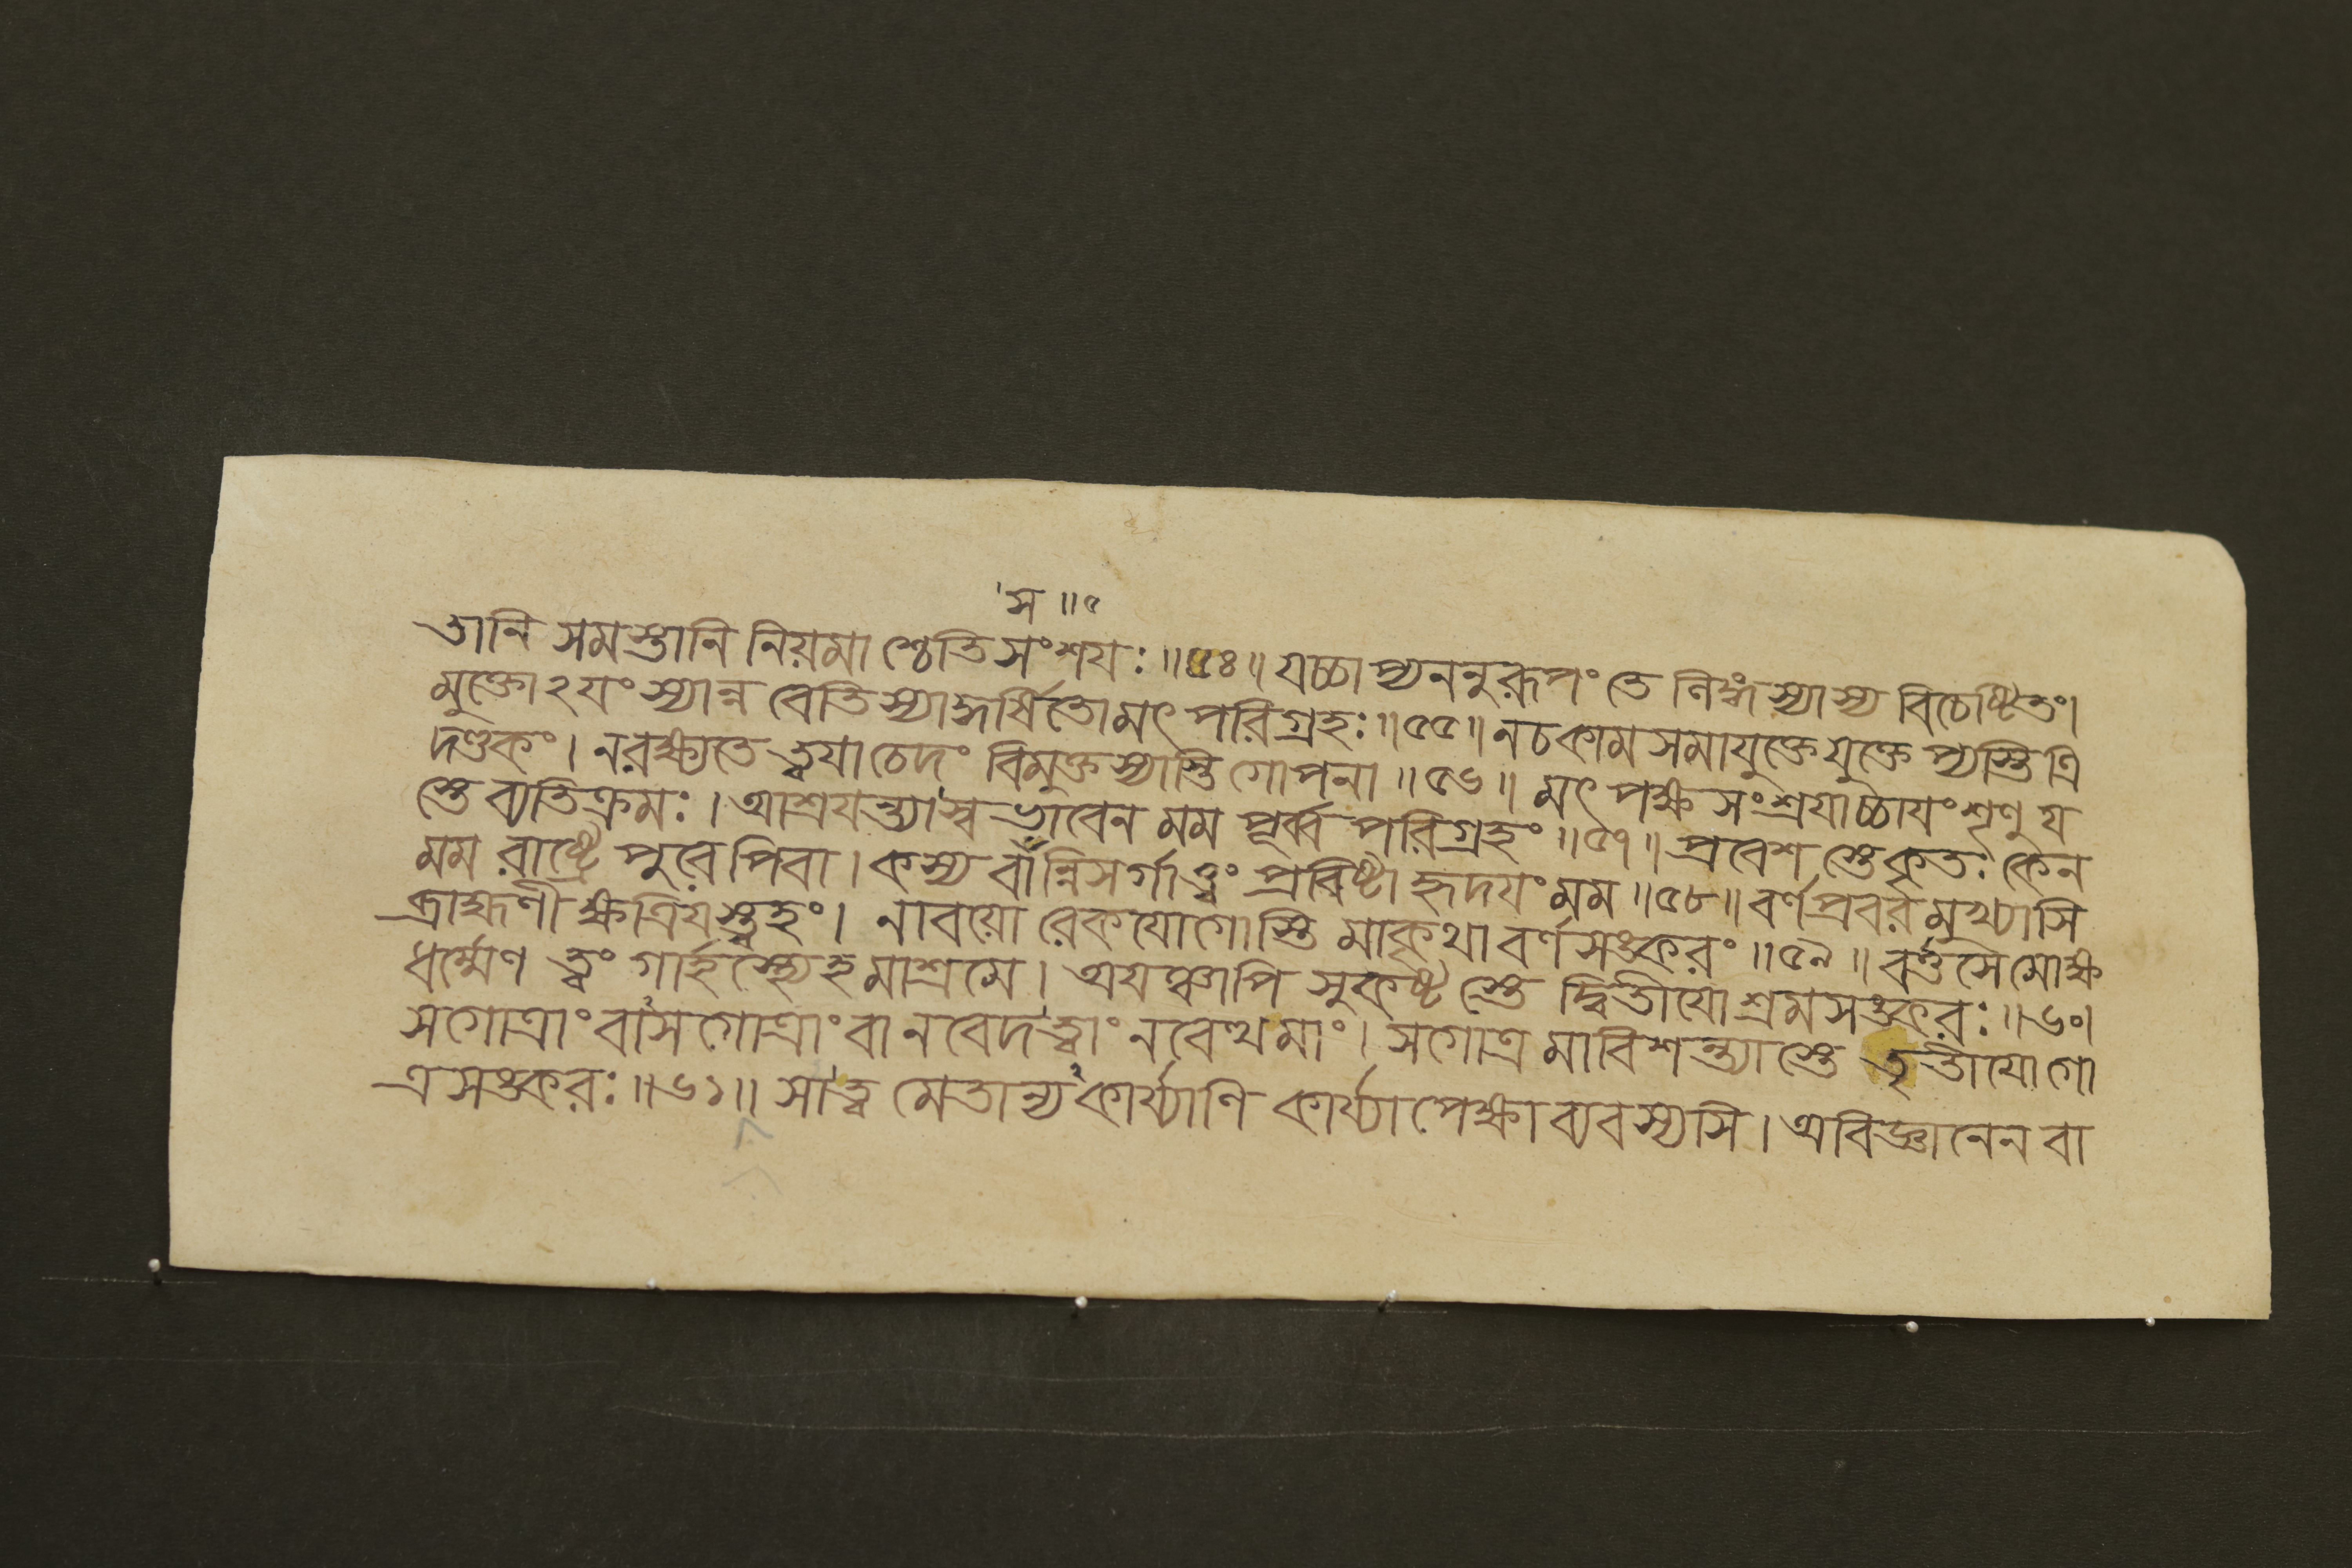 স ॥৫
তানি সমস্তানি নিয়মা শ্চেতিসংশযঃ॥৫৪॥ যচ্চাপ্যননুরূপং তে লিঙ্গস্যাস্য বিচেষ্টিতং।
মুক্তোঽযং স্যান্ন বেতিস্যাদ্ধর্ষিতোমৎ পরিগ্রহঃ॥৫৫॥ নচকামসমাযুক্তেযুক্তেপ্যস্তিত্রি
দণ্ডকং। নরক্ষ্যতে ত্বযাচেদং বিমুক্তস্যাস্তি গোপনা॥৫৬॥ মৎ পক্ষসংশ্রযাচ্চাযংশৃণু য
স্তে ব্যতিক্রমঃ। আশ্রযন্ত্যা স্বভাবেন মম পূর্ব্বপরিগ্রহং॥৫৭॥ প্রবেশ স্তেকৃতঃ কেন
মম রাষ্ট্রে পুরেপিবা। কস্য বান্নিসর্গাত্ত্বং প্রবিষ্টা হৃদযংমম॥৫৮॥ বর্ণপ্রবরমুখ্যাসি
ব্রাহ্মণী ক্ষত্রিযস্ত্বহং। নাবয়ো রেকযোগোস্তি মাকৃথা বর্ণসঙ্করং॥৫৯॥ বর্ত্তসেমোক্ষ
ধর্ম্মেণ ত্বং গার্হস্থ্যেহমাশ্রমে। অযঞ্চাপি সুকষ্ট স্তে দ্বিতীযোশ্রমসঙ্করঃ॥৬০।
সগোত্রাং বাসগোত্রাং বা নবেদত্বাং নবেত্থমাং। সগোত্রমাবিশন্ত্যাস্তে তৃতীযোগো
ত্রসঙ্করঃ॥৬১॥ সাত্ব মেতান্যকার্য্যাণি কার্য্যাপেক্ষা ব্যবস্যসি। অবিজ্ঞানেন বা